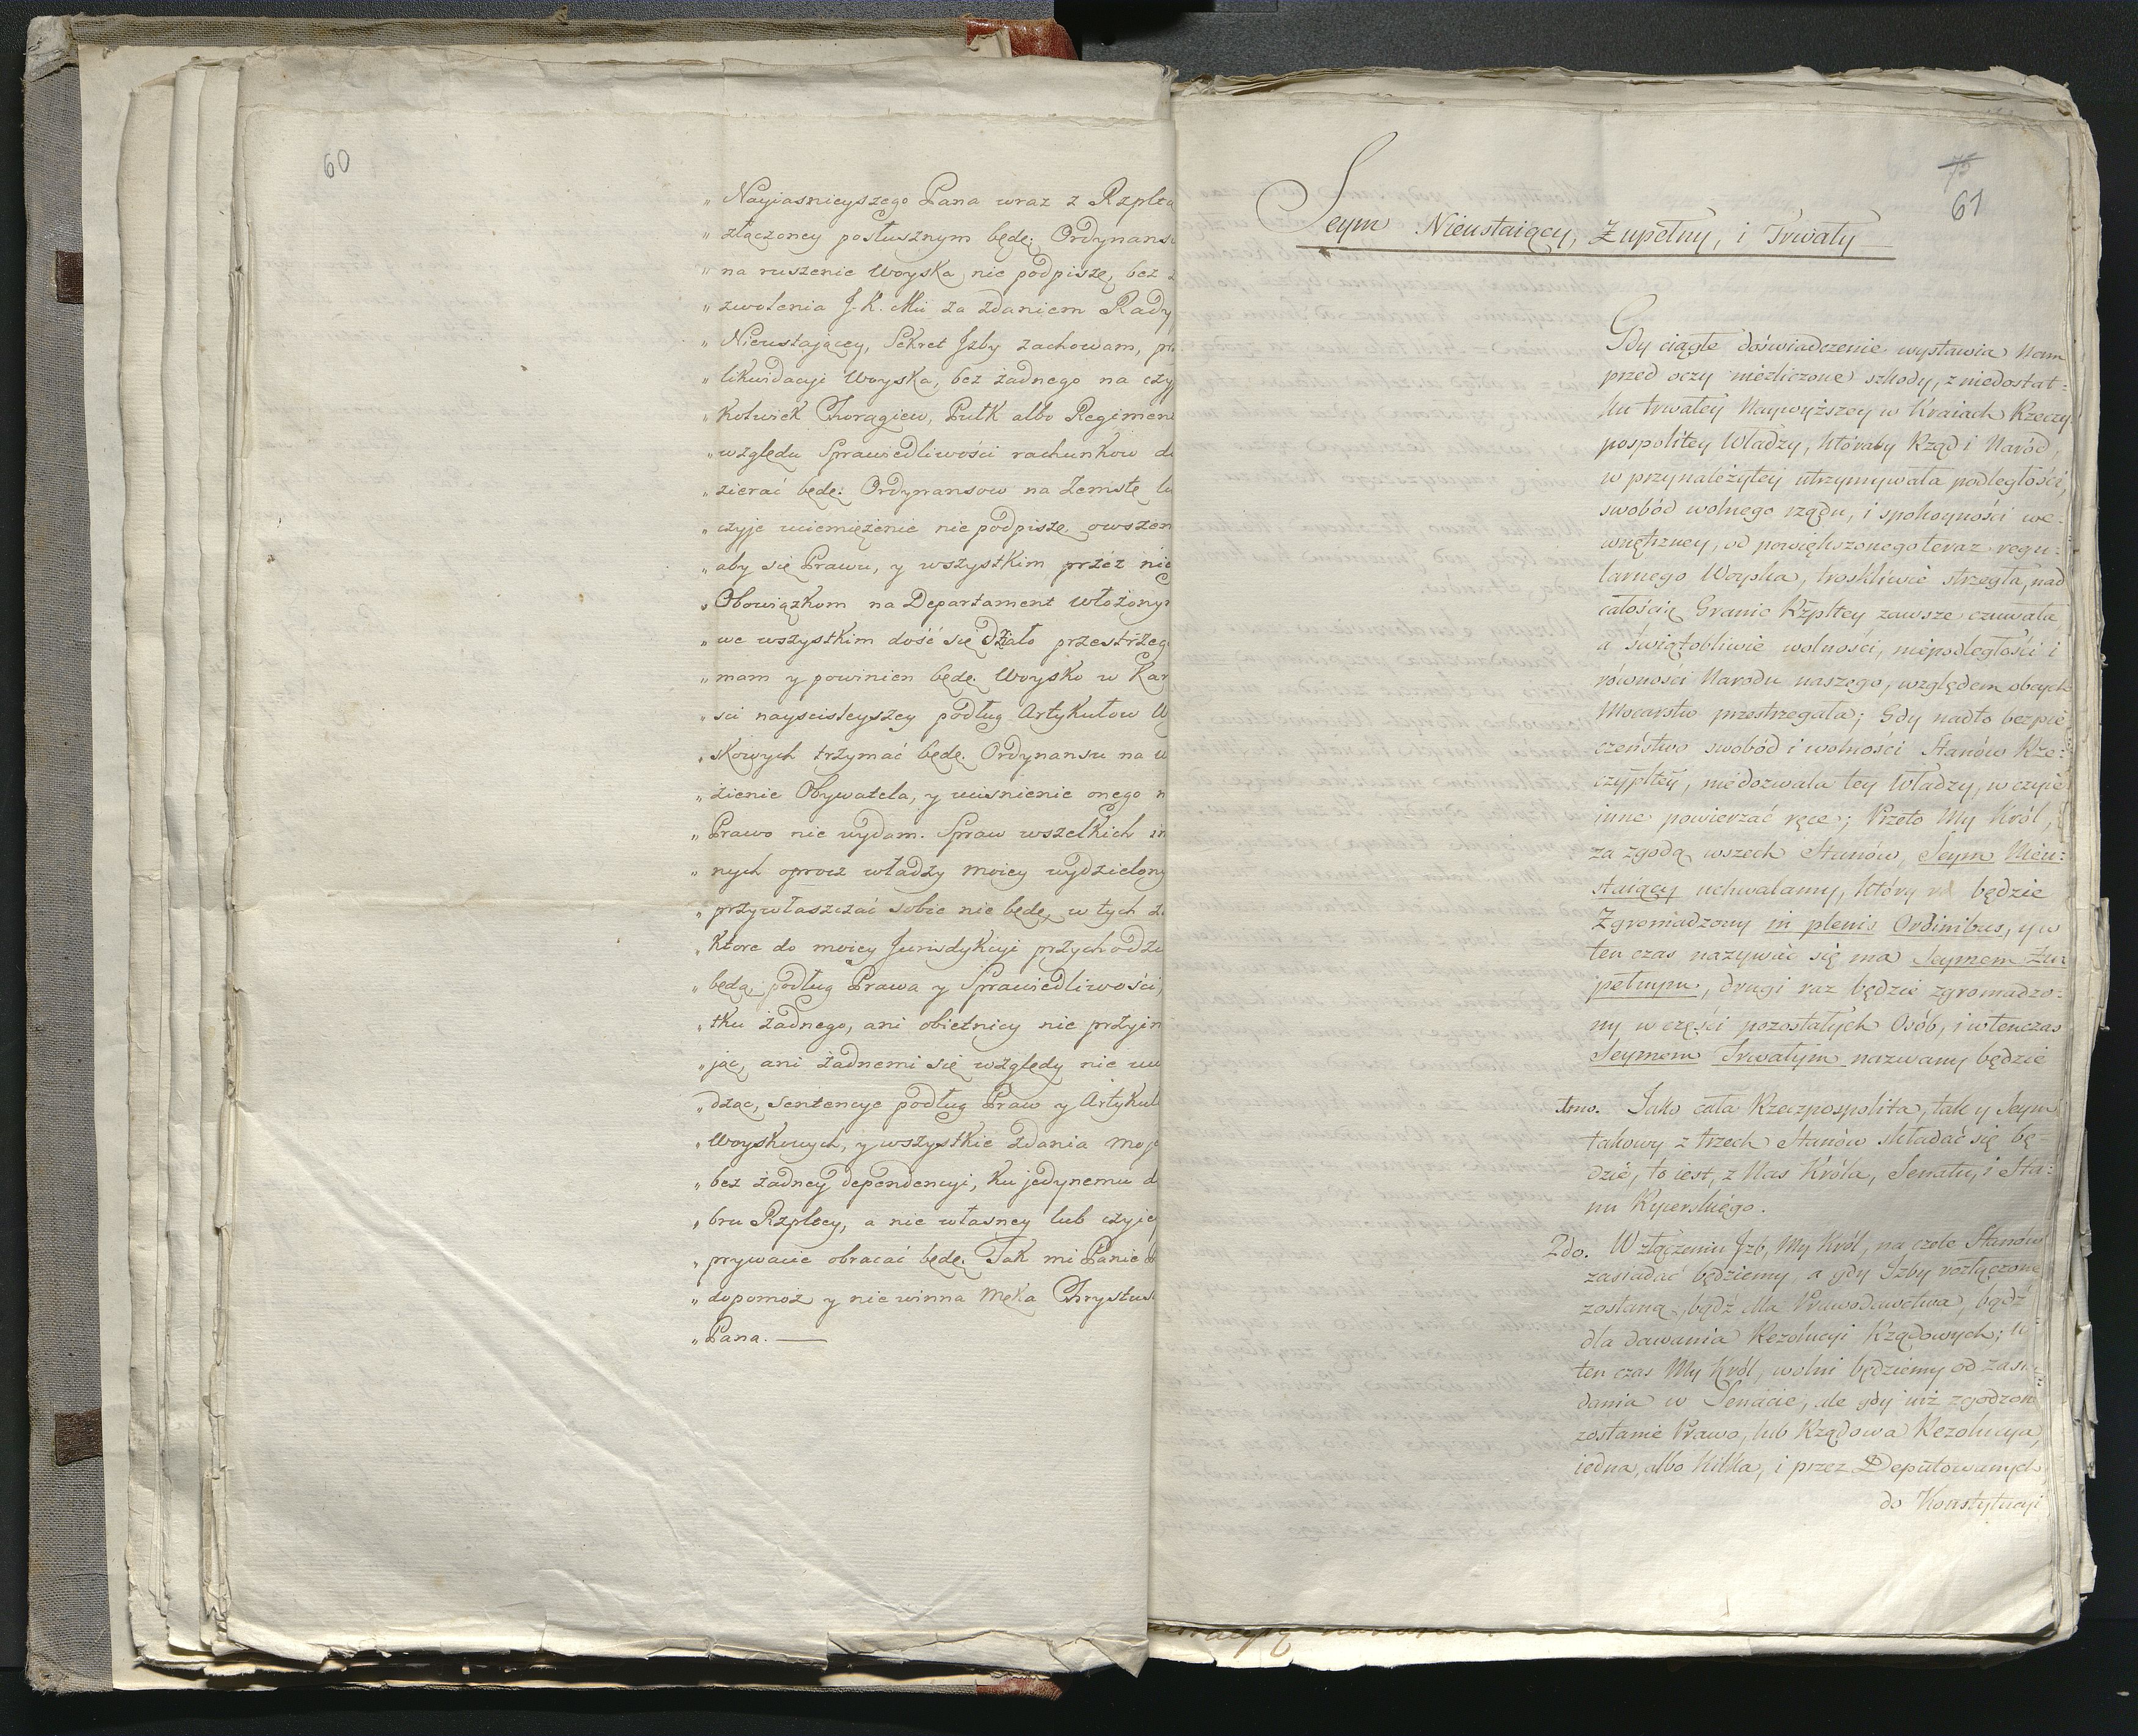 60
„ Nayiasnieyszego Pana wraz z Rzplta
„ złączoney posłusznym będę; Ordynans
„ na ruszenie Woyska nie podpiszę, bez
„ zwolenia J. K. Mći za zdaniem Rady
„ Nieustającey, Sekret Jzby zachowam, pr
„ likwidacyi Woyska, bez żadnego na czy
„ kolwiek Chorągiew, Pułk albo Regimen
„ względu Sprawiedliwości rachunkow d
„ zierać będę: Ordynansow na Zemstę lu
„ czyje uciemiężenie nie podpiszę, owszem
„ aby się Prawu, y wszystkim przéz nie
„ Obowiązkom na Departament włożony
„ we wszystkim dość się działo przestrzeg
„ mam y powinien będę. Woysko w Kar
„ sci nayscisleyszey podług Artykułow W
„ skowych trzymać będę. Ordynansu na u
„ żienie Obywatela, y uciśnienie onego n
„ Prawo nie wydam. Spraw wszelkich in
„ nych oprocz władzy moiey wydzielony
„ przywłaszczać sobie nie będę, w tych z
„ Ktore do moiey Jurisdykcyi przychodzi
„ będą, podług Prawa y Sprawiedliwości,
„ tku żadnego, ani obietnicy nie przyim
„ jąc, ani żadnemi się względy nie uw
„ dząc, Sentencye podług Praw y Artykuł
„ Woyskowych, y wszystkie zdania moje
„ bez żadney dependencyi, Ku jedynemu d
„ bru Rzpltey, a nie własney lub czyiey
„ prywacie obracać będę. Tak mi Panie B
„ dopomoż y niewinna Męka Chrystusa
„ Pana. —
75
61
Seym Nieustaiący, Zupełny, i Trwały
Gdy ciągłe doświadczenie wystawia Nam
przed oczy niezliczone szkody, z niedostat-
ku trwałey Naywyższey w Kraiach Rzeczy
pospolitey Władzy, któraby Rząd i Naród,
w przynależytey utrzymywała podległości,
swobód wolnego rządu, i spokoyności we-
wnętrzney, od powiększonego teraz regu-
larnego Woyska, troskliwie strzegła, nad
całością Granic Rzpltey zawsze czuwała
a świątobliwie wolności, niepodległości i
równości Narodu naszego, względem obcych
Mocarstw przestrzegała; Gdy nadto bezpie
czeństwo swobód i wolności Stanów Rze-
czypltey, niedozwala tey Władzy, w czyie
inne powierzać ręce; Przeto My Król,
za zgodą wszech Stanów, Seym Nieu-
staiący uchwalamy, który będzie
Zgromadzony in plenis Ordinibus, y w
ten czas nazywać się ma Seymem Zu
pełnym, drugi raz będzie zgromadzo-
ny w części pozostałych Osób, i wtenczas
Seymem Trwałym nazwany będzie
1mo. Jako cała Rzeczpospolita, tak y Seym
takowy z trzech Stanów składać się bę-
dzie, to iest, z Nas Króla, Senatu, i Sta-
nu Rycerskiego.
2do. W złączeniu Jzb, My Król, na czele Stanów
zasiadać będziemy, a gdy Izby rozłączone
zostaną, bądź dla Prawodawctwa, bądź
dla dawania Rezolucyi Rządowych; w
ten czas My Król, wolni będziemy od zasia-
dania w Senacie, ale gdy iuż zgodzone
zostanie Prawo, lub Rządowa Rezolucya,
iedna, albo kilka, i przez Deputowanych
do Konstytucyi